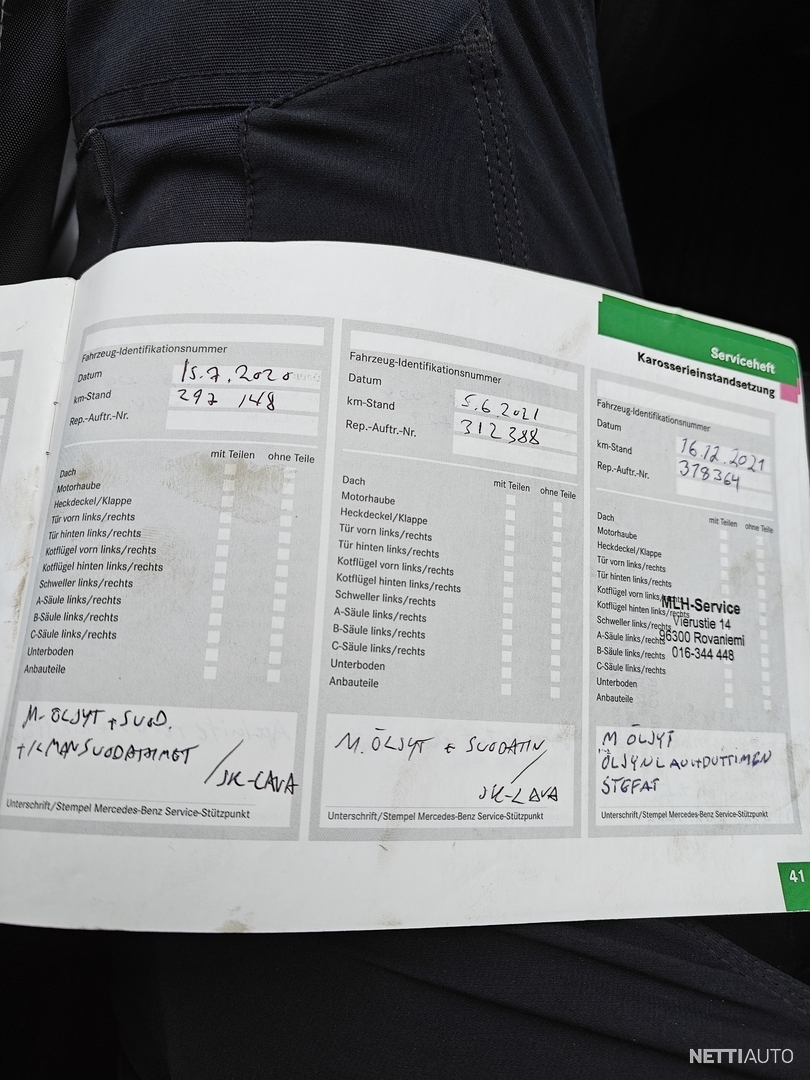 Serviceheft
Karosserieinstandsetzung
Fahrzeug-Identifikationsnummer
Datum 15.7.2020
km-Stand 297 148
Rep.-Auftr.-Nr.
mit Teilen ohne Teile
Dach
Motorhaube
Heckdeckel/Klappe
Tür vorn links/rechts
Tür hinten links/rechts
Kotflügel vorn links/rechts
Kotflügel hinten links/rechts
Schweller links/rechts
A-Säule links/rechts
B-Säule links/rechts
C-Säule links/rechts
Unterboden
Anbauteile
M-ÖLJYT + SUOD.
+ ILMANSUODATTIMET
/JK-LAVA
Unterschrift/Stempel Mercedes-Benz Service-Stützpunkt
Fahrzeug-Identifikationsnummer
Datum
km-Stand 5.6.2021
Rep.-Auftr.-Nr. 312388
mit Teilen ohne Teile
Dach
Motorhaube
Heckdeckel/Klappe
Tür vorn links/rechts
Tür hinten links/rechts
Kotflügel vorn links/rechts
Kotflügel hinten links/rechts
Schweller links/rechts
A-Säule links/rechts
B-Säule links/rechts
C-Säule links/rechts
Unterboden
Anbauteile
M. ÖLJYT + SUODATIN
/
JK-LAVA
Unterschrift/Stempel Mercedes-Benz Service-Stützpunkt
Fahrzeug-Identifikationsnummer
Datum
km-Stand 16.12.2021
Rep.-Auftr.-Nr. 318364
mit Teilen ohne Teile
Dach
Motorhaube
Heckdeckel/Klappe
Tür vorn links/rechts
Tür hinten links/rechts
Kotflügel vorn links/rechts
Kotflügel hinten links/rechts
Schweller links/rechts
A-Säule links/rechts
B-Säule links/rechts
C-Säule links/rechts
Unterboden
Anbauteile
MLH-Service
Vierustie 14
96300 Rovaniemi
016-344 448
M ÖLJYT
STEFAT
Unterschrift/Stempel Mercedes-Benz Service-Stützpunkt
41
NETTIAUTO